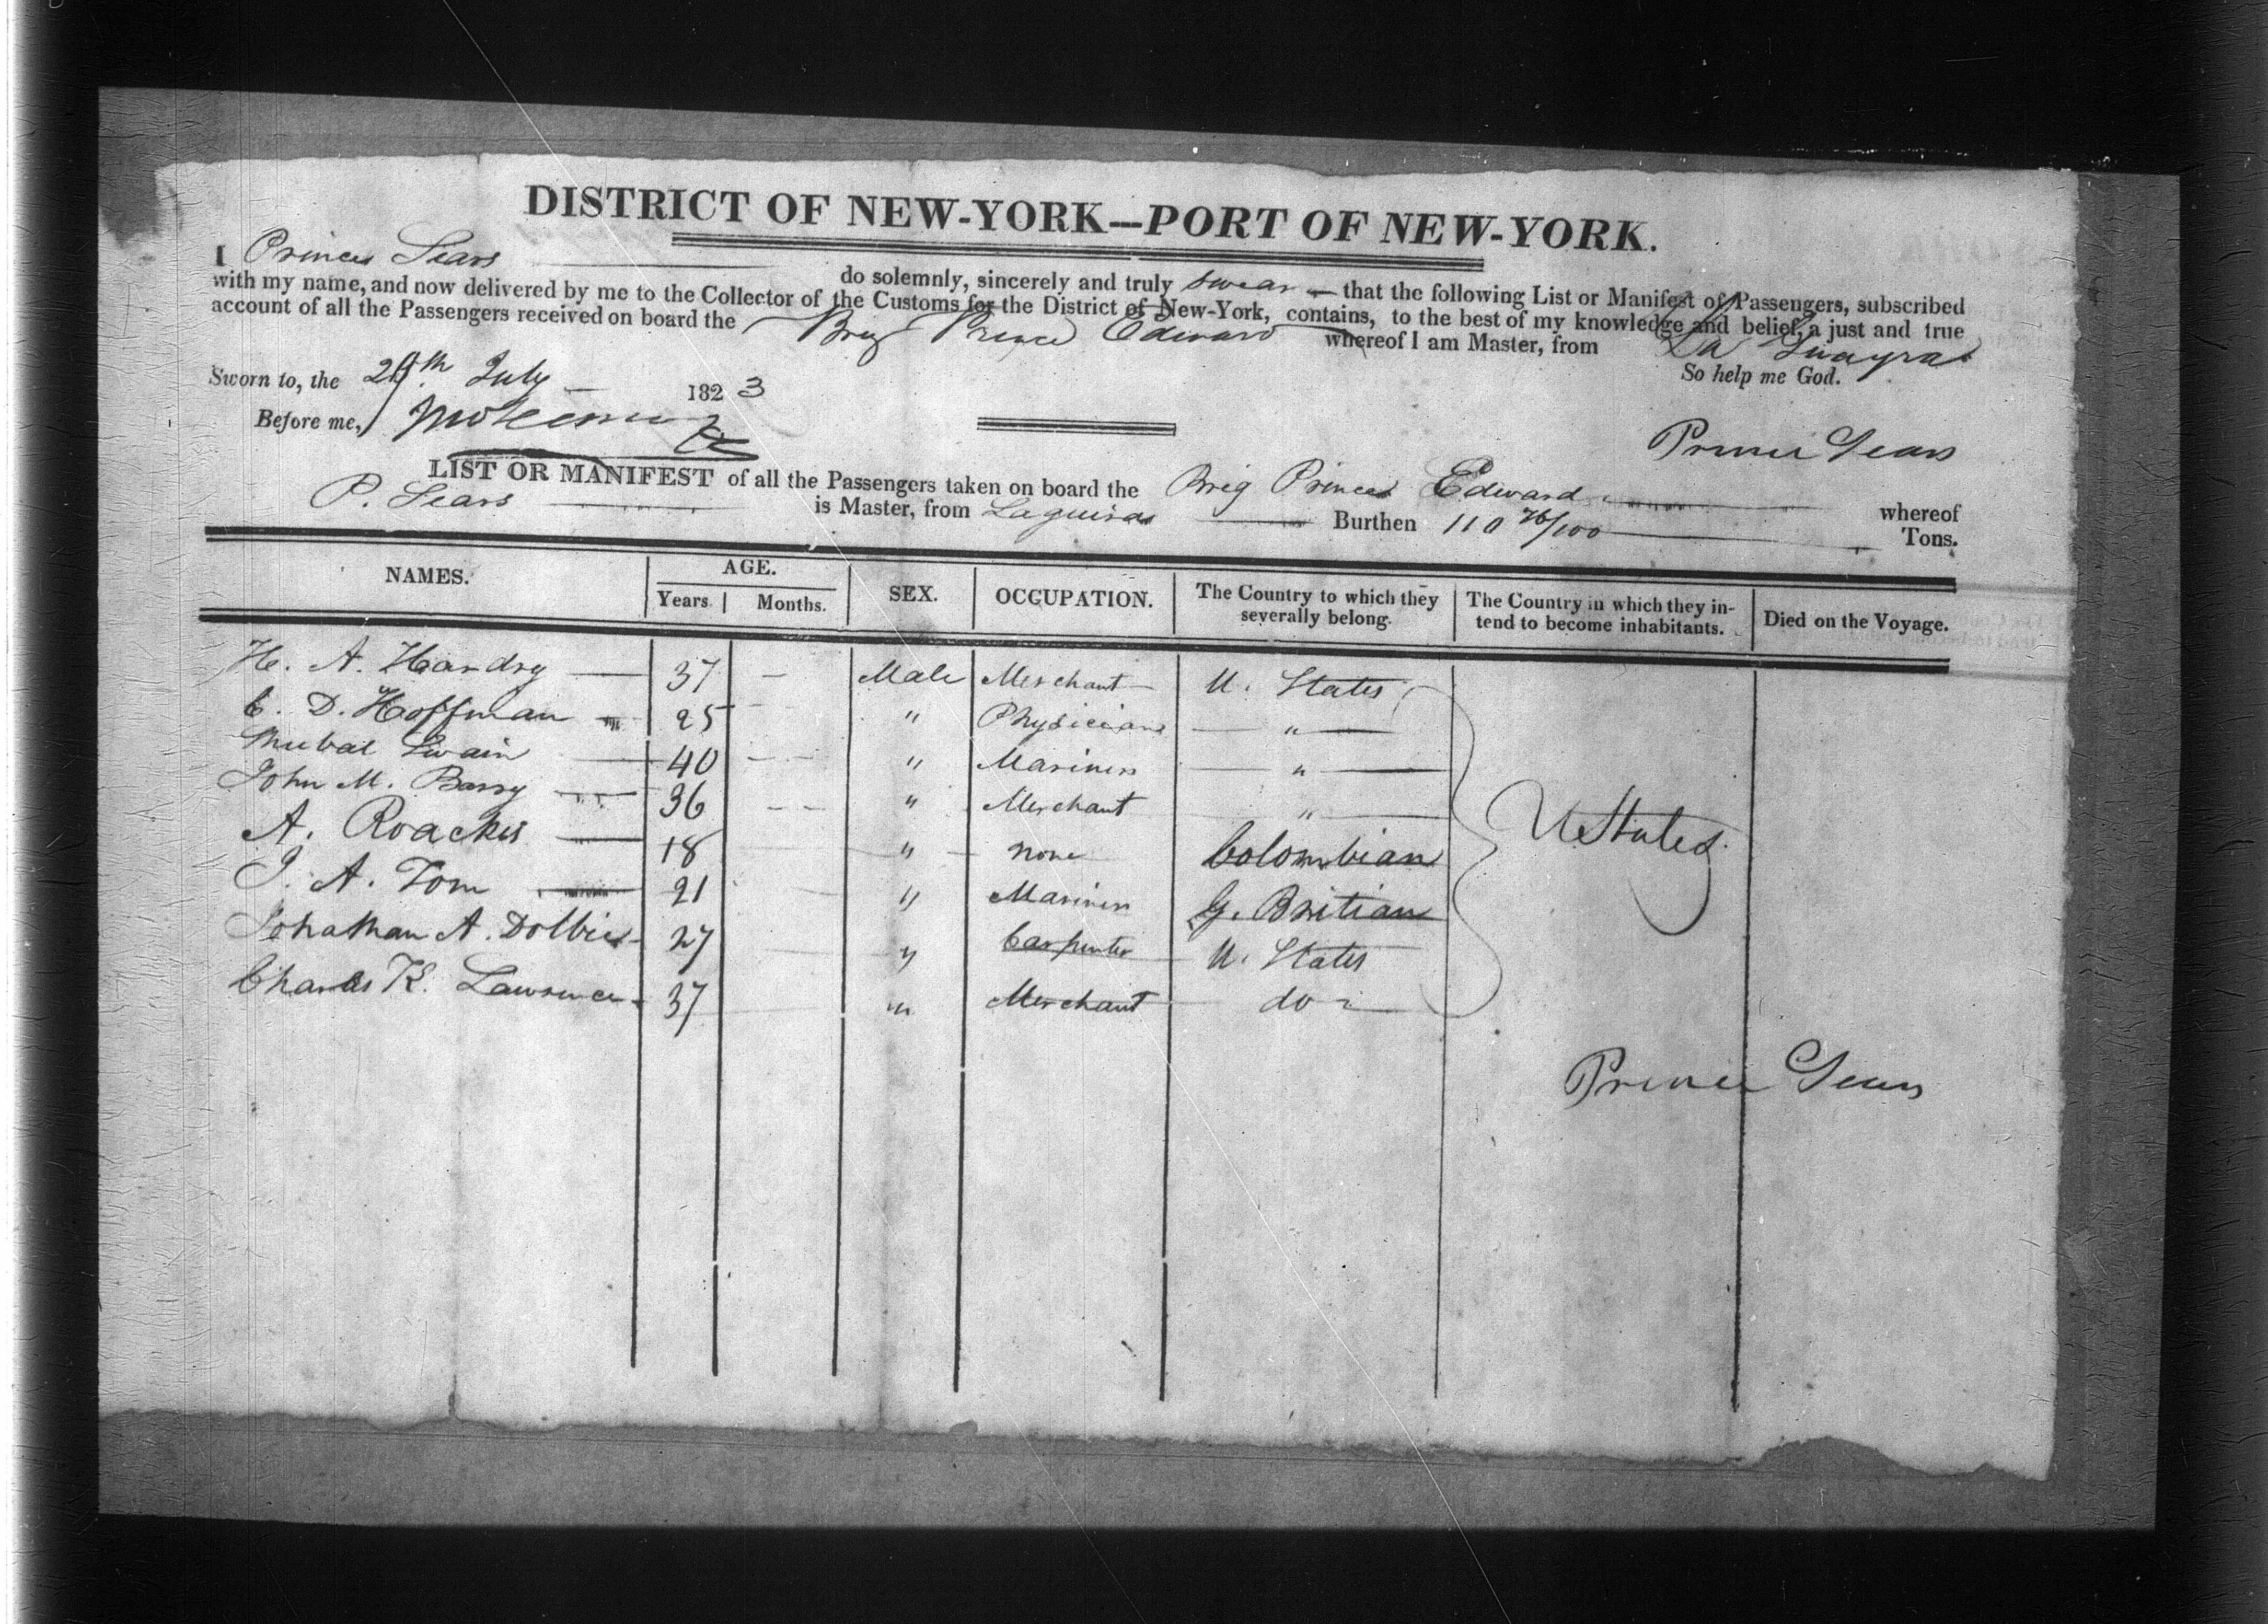 DISTRICT OF NEW-YORK—PORT OF NEW-YORK.
I Princes Sears do solemnly, sincerely and truly swear — that the following List or Manifest of Passengers, subscribed
with my name, and now delivered by me to the Collector of the Customs for the District of New-York, contains, to the best of my knowledge and belief, a just and true
account of all the Passengers received on board the Brig Prince Edward whereof I am Master, from La Guayra
So help me God.
Sworn to, the July 1823
Before me,
Prince Sears
LIST OR MANIFEST of all the Passengers taken on board the Brig Princes Edward whereof
P. Sears is Master, from Laguira Burthen 110 76/100 Tons.
NAMES. AGE. Years. Months. SEX. OCCUPATION. The Country to which they severally belong. The Country in which they intend to become inhabitants. Died on the Voyage.
H. A. Handry — 37 — Male Merchant — U. States
C. D. Hoffman 25 " Physician — " —
Shubal Swain — 40 — " Mariner — " —
John M. Barry 36 — " Merchant "
A. Roaches — 18 " none Colombian
J. A. Tom 21 " Mariner G. Britian
Johathan A. Dolbie 27 " Carpenter U. States
Charles K. Lawrence 37 " Merchant do
U States
Prince Sears